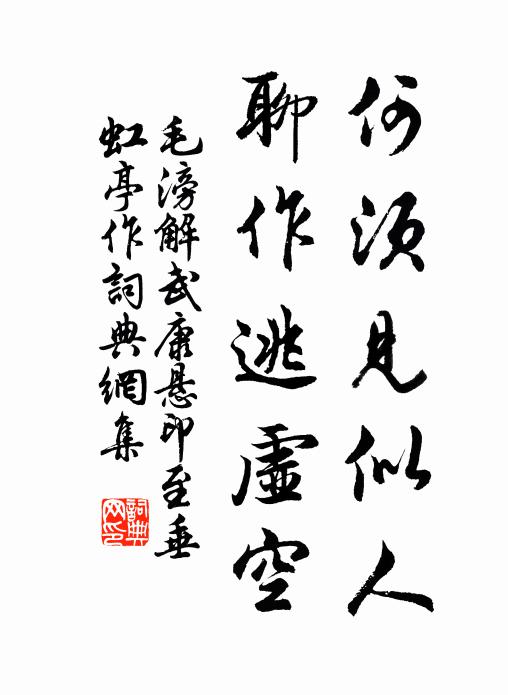 何須見似人
聊作逃虛空
毛滂解武康懸印至垂
虹亭作詞典網集
詞典
网印